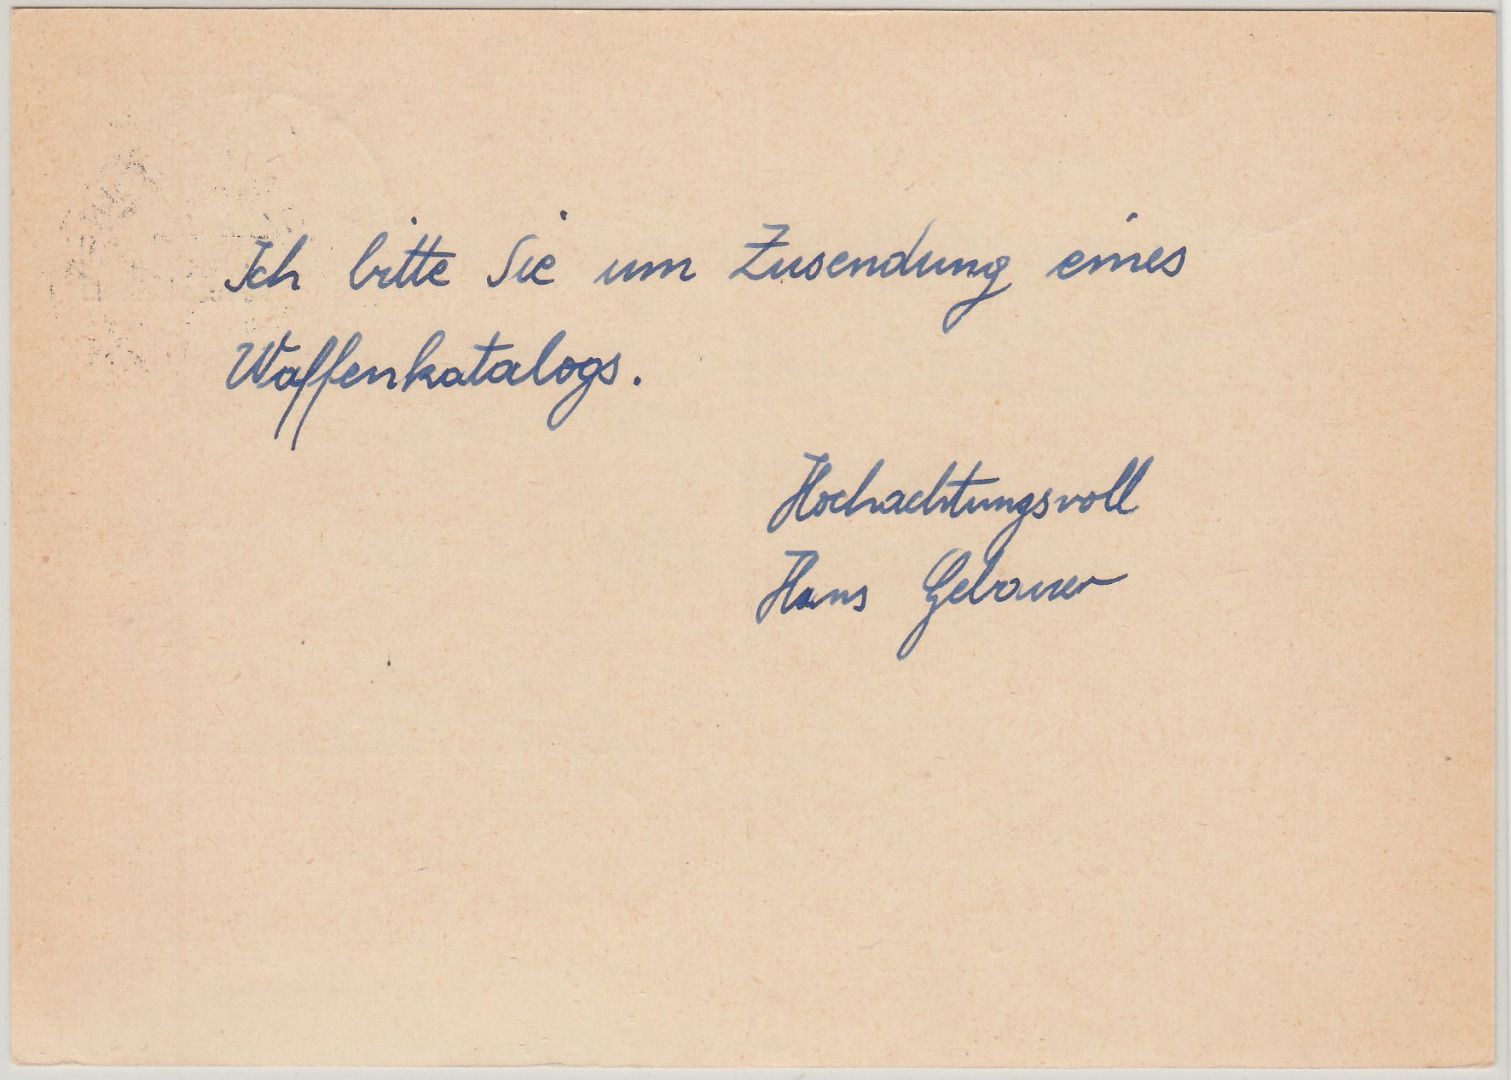 Ich bitte Sie um Zusendung eines
Waffenkatalogs.
Hochachtungsvoll
Hans Gebauer